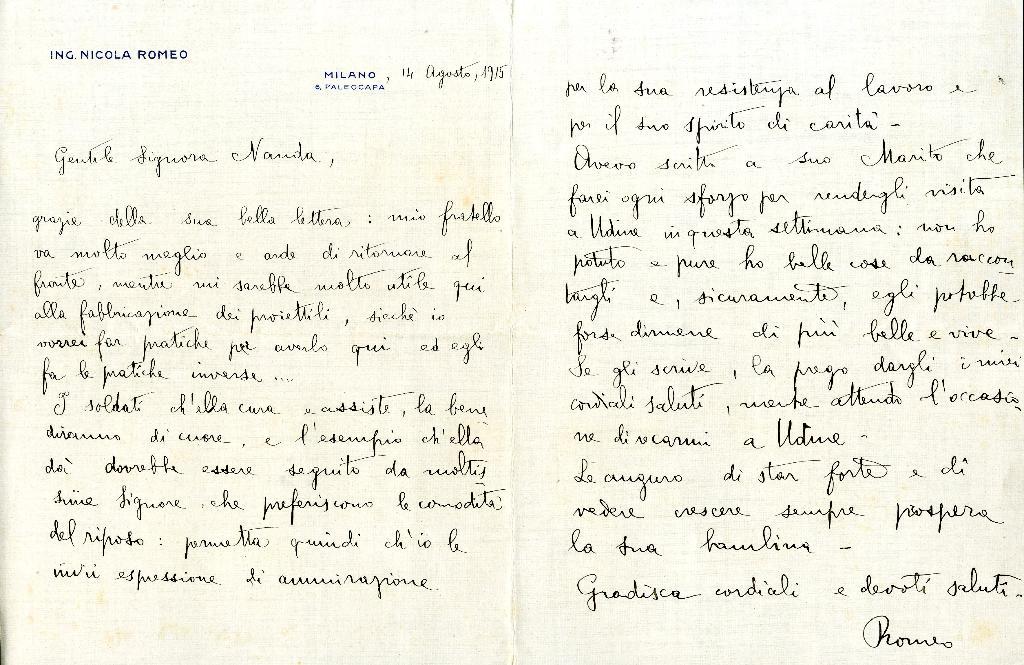 ING. NICOLA ROMEO
MILANO, 14 Agosto, 1915
6, PALEOCAPA
Gentile Signora Nanda,
grazie della sua bella lettera: mio fratello
va molto meglio e arde di ritornare al
fronte, mentre mi sarebbe molto utile qui
alla fabbricazione dei proiettili, sicchè io
vorrei far pratiche per averlo qui ed egli
fa le pratiche inverse ....
I soldati ch'ella cura e assiste, la bene
diranno di cuore, e l'esempio ch'ella
dà dovrebbe essere seguito da moltis
sime Signore, che preferiscono le comodità
del riposo: permetta quindi ch'io le
invii espressione di ammirazione
per la sua resistenza al lavoro e
per il suo spirito di carità -
Avevo scritto a suo Marito che
farei ogni sforzo per rendergli visita
a Udine in questa settimana: non ho
potuto e pure ho belle cose da raccon
targli e, sicuramente, egli potrebbe
forse dirmene di più belle e vive -
Se gli scrive, la prego dargli i miei
cordiali saluti, mentre attendo l'occasio
ne di recarmi a Udine -
Le auguro di star forte e di
vedere crescere sempre prospera
la sua bambina -
Gradisca cordiali e devoti saluti -
Romeo